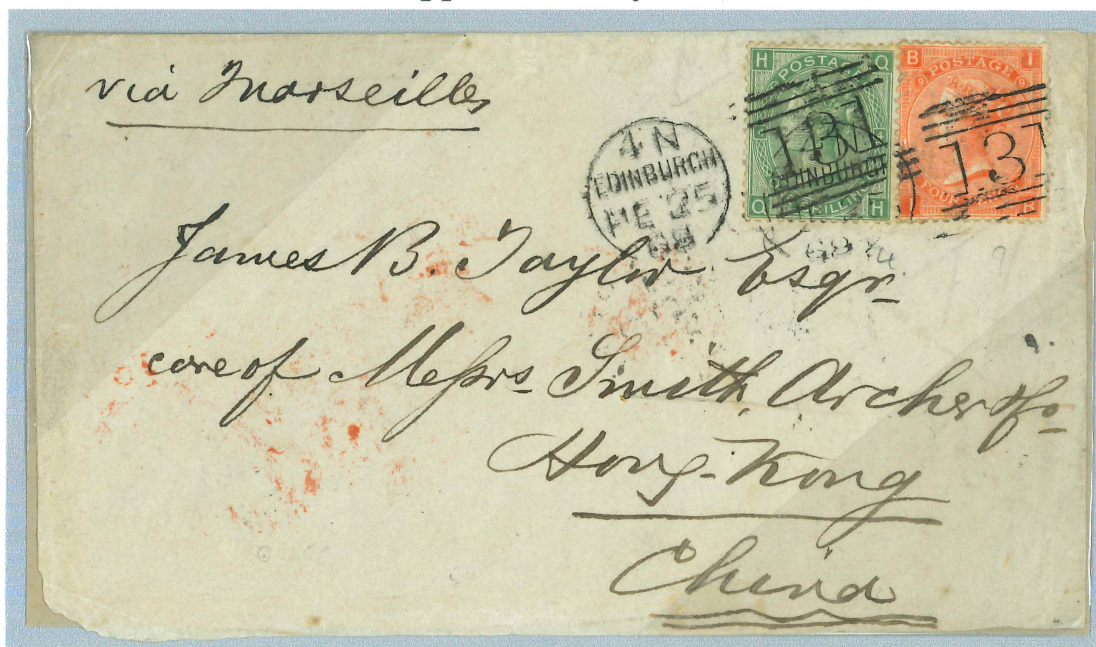 via Marseilles
4 N
EDINBURGH
FE 25
68
H Q
POSTAGE
131
EDINBURGH
SHILLING
Q H
B I
9 POSTAGE 9
131
FOUR
James B. Taylor Esqr
care of Messrs Smith, Archer & Co
Hong-Kong
China